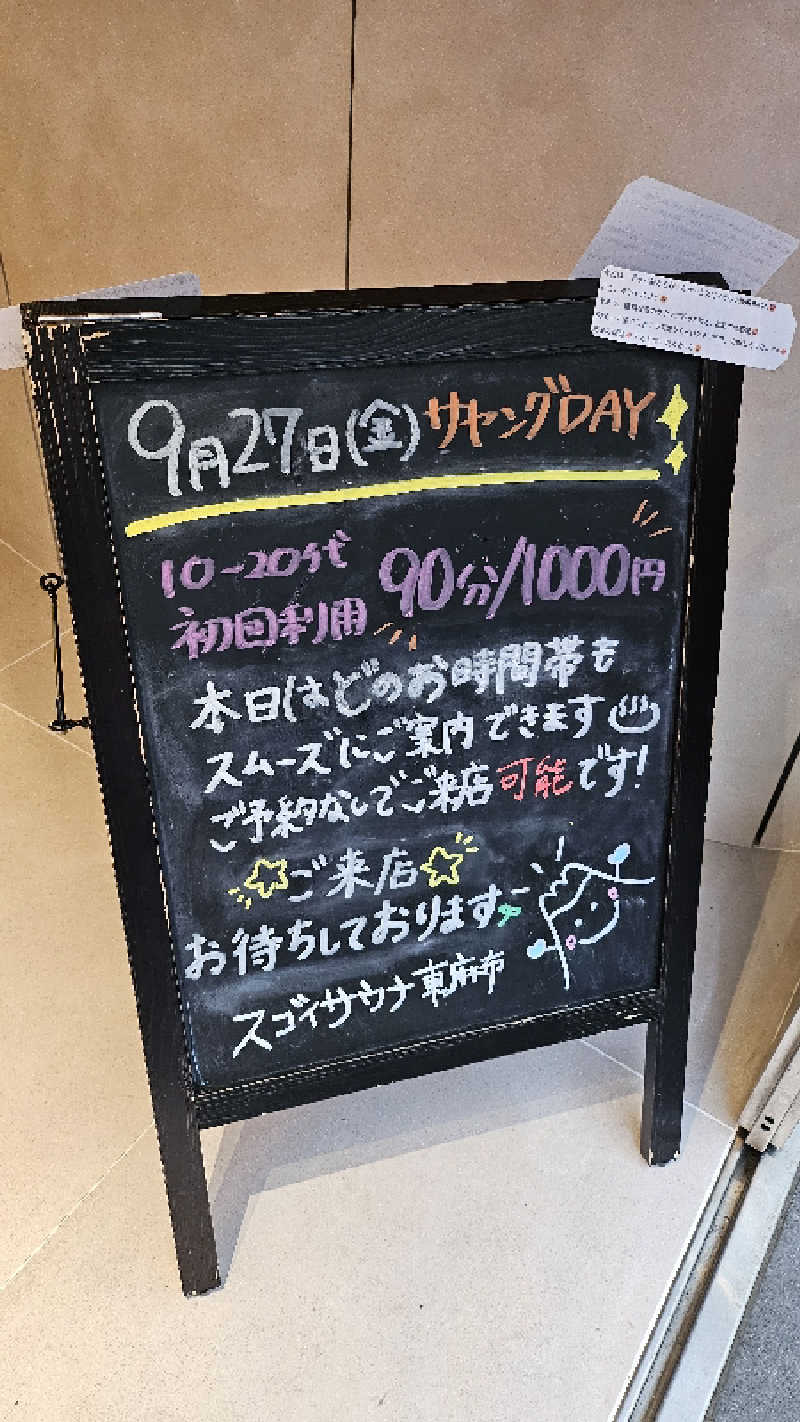 9月27日(金) サヤングDAY
10-20代 90分/1000円
初回利用
本日はどのお時間帯も
スムーズにご案内できます♨
ご予約なしでご来店可能です!
☆ご来店☆
お待ちしております
スゴイサウナ東麻布